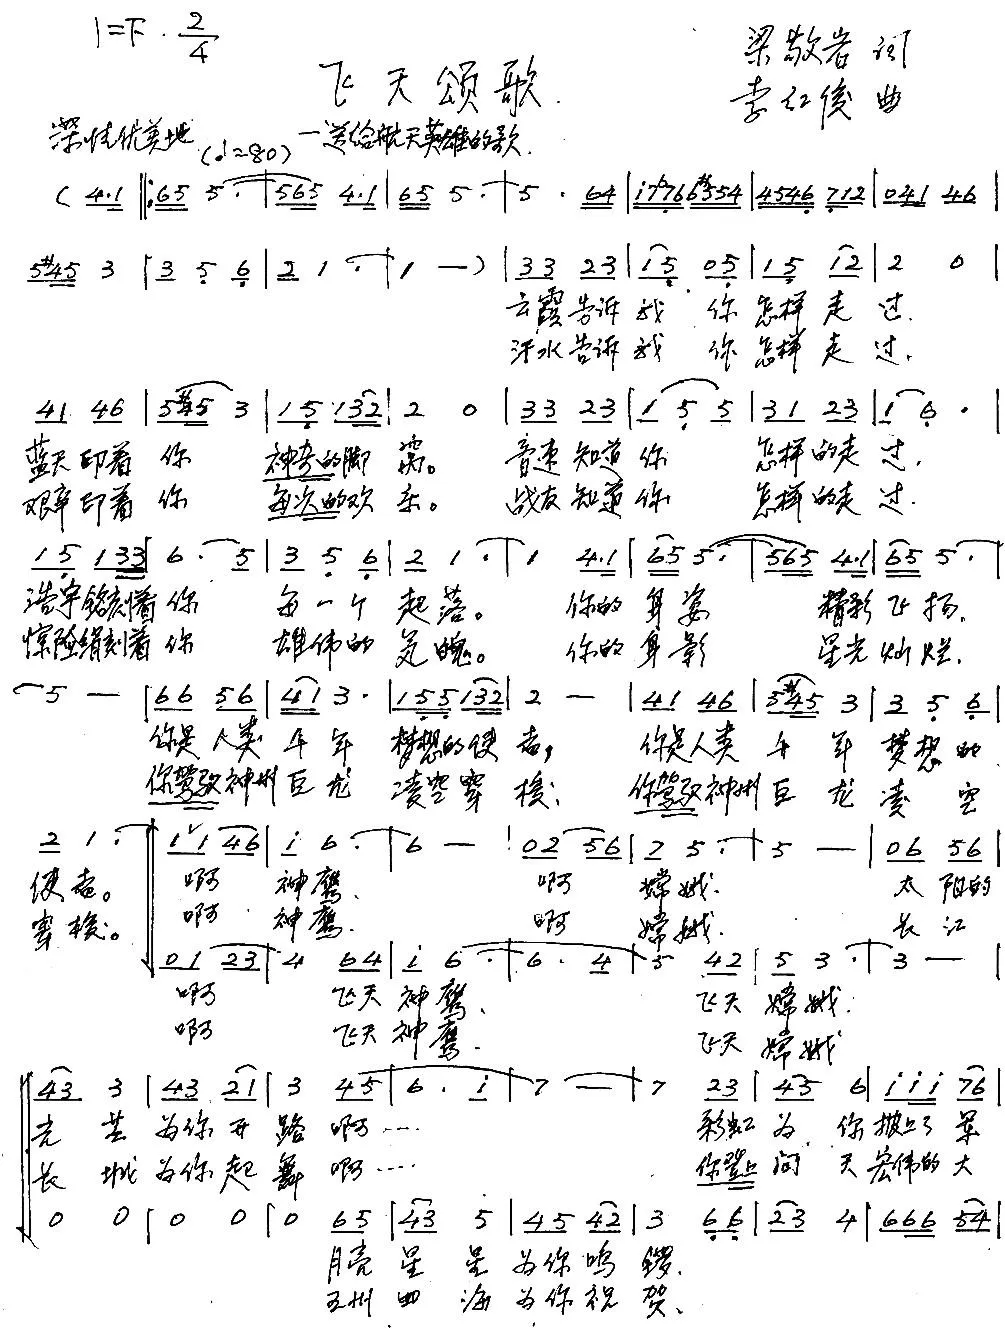 1=F · 2/4
飞天颂歌
梁敬岩 词
李红俊 曲
深情优美地 (♩=80) —送给航天英雄的歌
( 4·1 ‖: 65 5· | 565 4·1 | 65 5· | 5 · 64 | i7765#554 | 4546 712 | 041 46 |
5#45 3 | 3 5 6 | 2 1 · | 1 — ) | 33 23 | 15 05 | 15 12 | 2 0 |
云霞告诉我 你怎样走过.
汗水告诉我 你怎样走过.
41 46 | 5#45 3 | 15 132 | 2 0 | 33 23 | 1 5 5 | 31 23 | 1 6 · |
蓝天印着你 神奇的脚窝。 音速知道你 怎样的走过.
艰辛印着你 每次的欢乐。 战友知道你 怎样的走过.
15 133 | 6 · 5 | 3 5 6 | 2 1 · | 1 4·1 | 65 5· | 565 4·1 | 65 5· |
浩宇铭刻着你 每一个起落。 你的身姿 精彩飞扬.
惊险镌刻着你 雄伟的气魄。 你的身影 星光灿烂.
5 — | 66 56 | 41 3· | 155 132 | 2 — | 41 46 | 5#45 3 | 3 5 6 |
你是人类千年 梦想的使者, 你是人类千年梦想的
你驾驭神州巨龙 凌空穿梭; 你驾驭神州巨龙凌空
2 1 · | 11 46 | i 6 · | 6 — | 02 56 | 2 5 · | 5 — | 06 56 |
使者。 啊 神鹰. 啊 嫦娥. 太阳的
穿梭。 啊 神鹰. 啊 嫦娥. 长江
01 23 | 4 64 | i 6 · | 6 · 4 | 5 42 | 5 3 · | 3 — |
啊 飞天神鹰. 飞天嫦娥.
啊 飞天神鹰. 飞天嫦娥.
43 3 | 43 21 | 3 45 | 6 · i | 7 — | 7 23 | 45 6 | iii 76 |
光芒为你开路 啊…… 彩虹为你披上了翠
长城为你起舞 啊…… 你登上问天宏伟的大
0 0 | 0 0 | 0 65 | 43 5 | 45 42 | 3 66 | 23 4 | 666 54 |
月亮星星为你鸣锣.
五州四海为你祝贺.